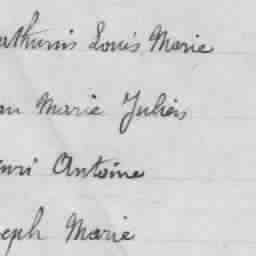 athurin Louis Marie
an Marie Julien
enri Antoine
seph Marie